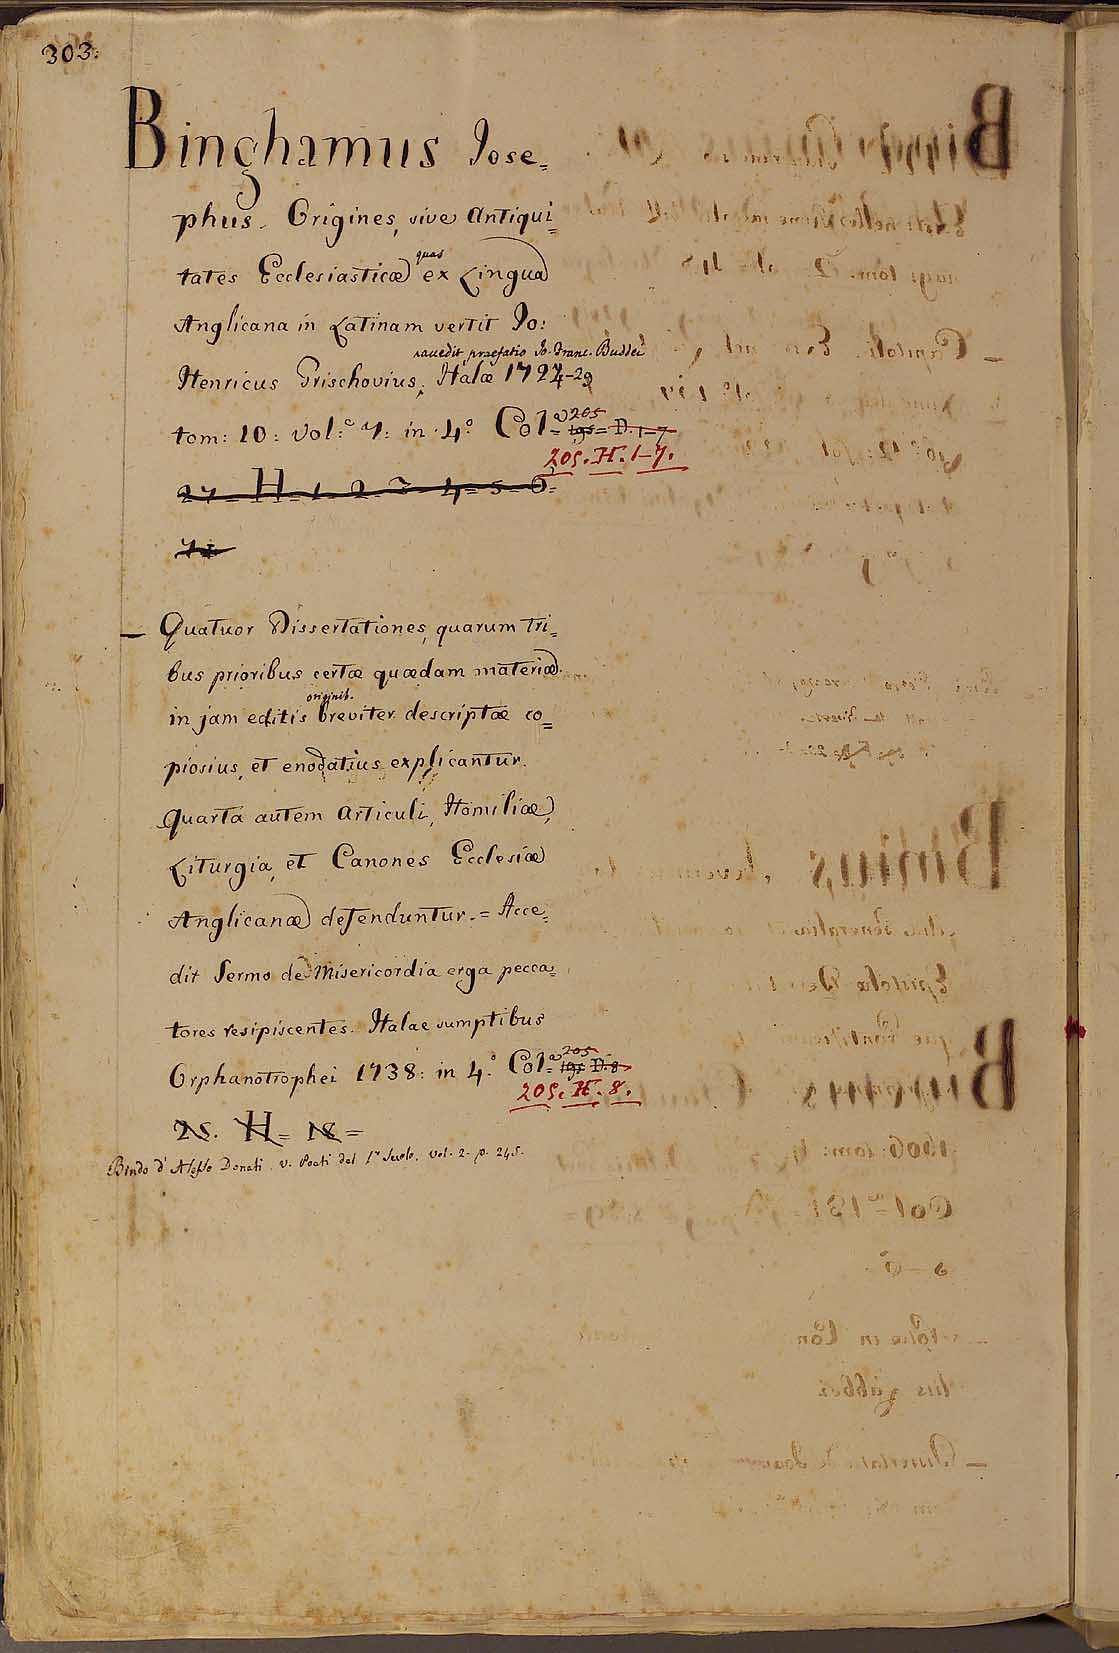 303.
Binghamus Iose=
phus. Origines, sive Antiqui=
quas
tates Ecclesiasticæ ex Lingua
Anglicana in Latinam vertit Io:
præfatio Jo. Franc. Buddei
Henricus Grischovius, Halæ 1724-29
tom: 10: vol: 7: in 4º Col= 205 D. 1-7
205. H. 1-7.
27 = H = 1. 2. 3. 4 = 5 = 6.
— Quatuor Dissertationes, quarum tri=
bus prioribus certæ quædam materiæ
originib.
in jam editis breviter descriptæ co=
piosius, et enodatius explicantur.
Quarta autem Articuli, Homiliæ,
Liturgia, et Canones Ecclesiæ
Anglicanæ defenduntur. = Acce=
dit Sermo de Misericordia erga pecca=
tores resipiscentes. Halae sumptibus
Orphanotrophei 1738: in 4º Col= 205 195 D. 8
205. H. 8.
25. H = 18 =
Bindo d'Alesso Donati. v. Poeti del 1º Secolo. vol. 2. p. 245.